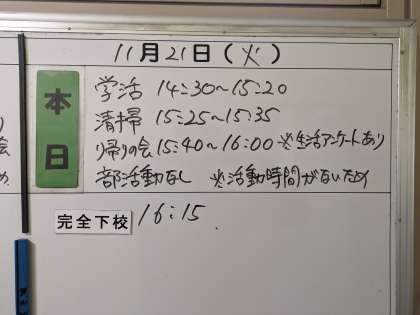 11月21日(火)
本日
学活 14:30〜15:20
清掃 15:25〜15:35
り帰りの会 15:40〜16:00 ※生活アンケートあり
部活動なし ※活動時間がないため
完全下校 16:15